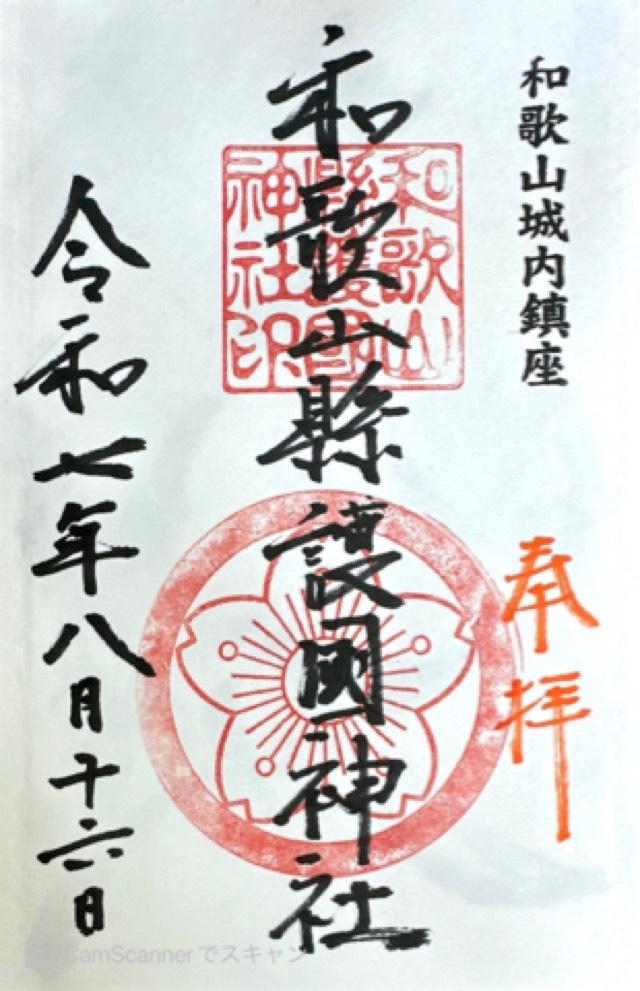 和歌山城内鎮座
奉拝
和歌山縣護國神社
和歌山
縣護國
神社印
令和七年八月十六日
CamScannerでスキャン